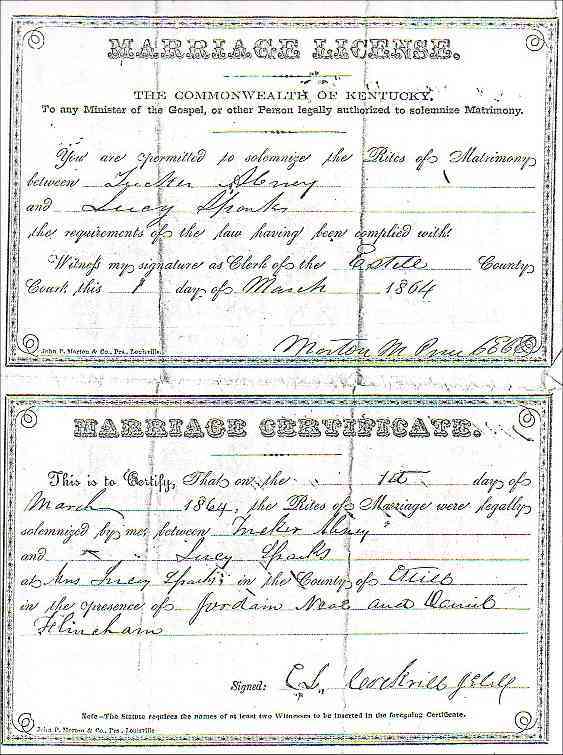 MARRIAGE LICENSE.
THE COMMONWEALTH OF KENTUCKY.
To any Minister of the Gospel, or other Person legally authorized to solemnize Matrimony.
You are permitted to solemnize the Rites of Matrimony
between Tucker Abney
and Lucy Sparks
the requirements of the law having been complied with.
Witness my signature as Clerk of the Estill County
Court, this 1 day of March 1864
Morton M Price
John P. Morton & Co., Prs. Louisville.
MARRIAGE CERTIFICATE.
This is to Certify, That on the 1st day of
March 1864, the Rites of Marriage were legally
solemnized by me, between Tucker Abney
and Lucy Sparks
at Mrs Lucy Sparks in the County of Estill
in the presence of Jordain Neal and Daniel
Flincham
Signed: C L
Note—The Statute requires the names of at least two Witnesses to be inserted in the foregoing Certificate.
John P. Morton & Co., Prs. Louisville